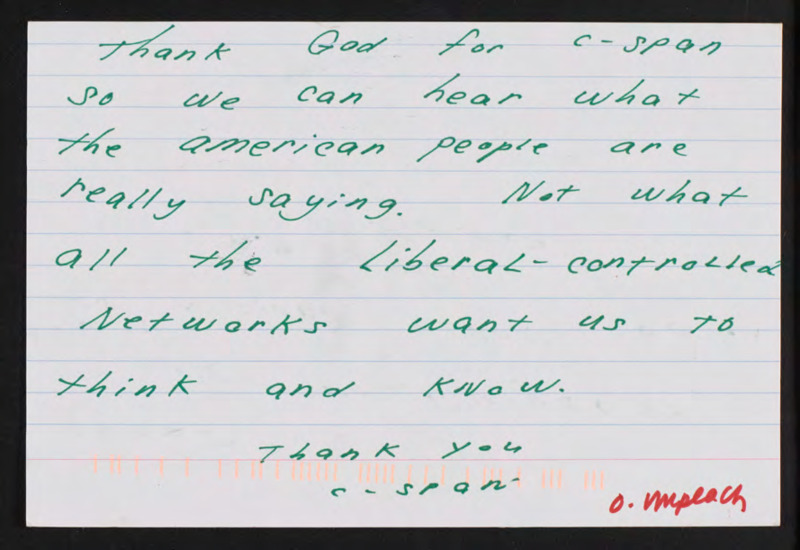 Thank God for c-span
so we can hear what
the american people are
really saying. Not what
all the Liberal-controlled
Networks want us to
think and KNOW.
Thank you
c-span
O. Impeach